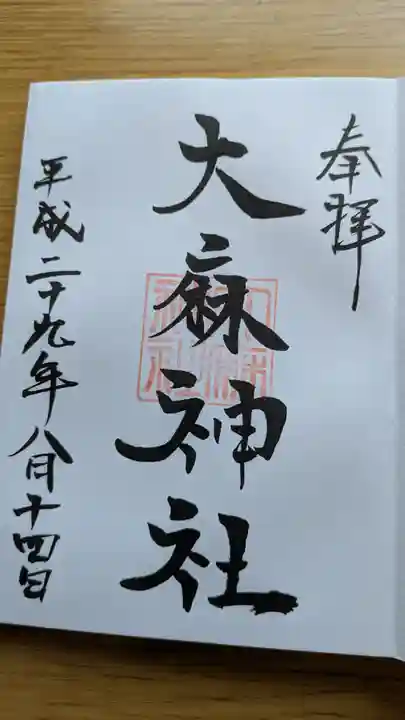 奉拝
大麻神社
平成二十九年八月十四日